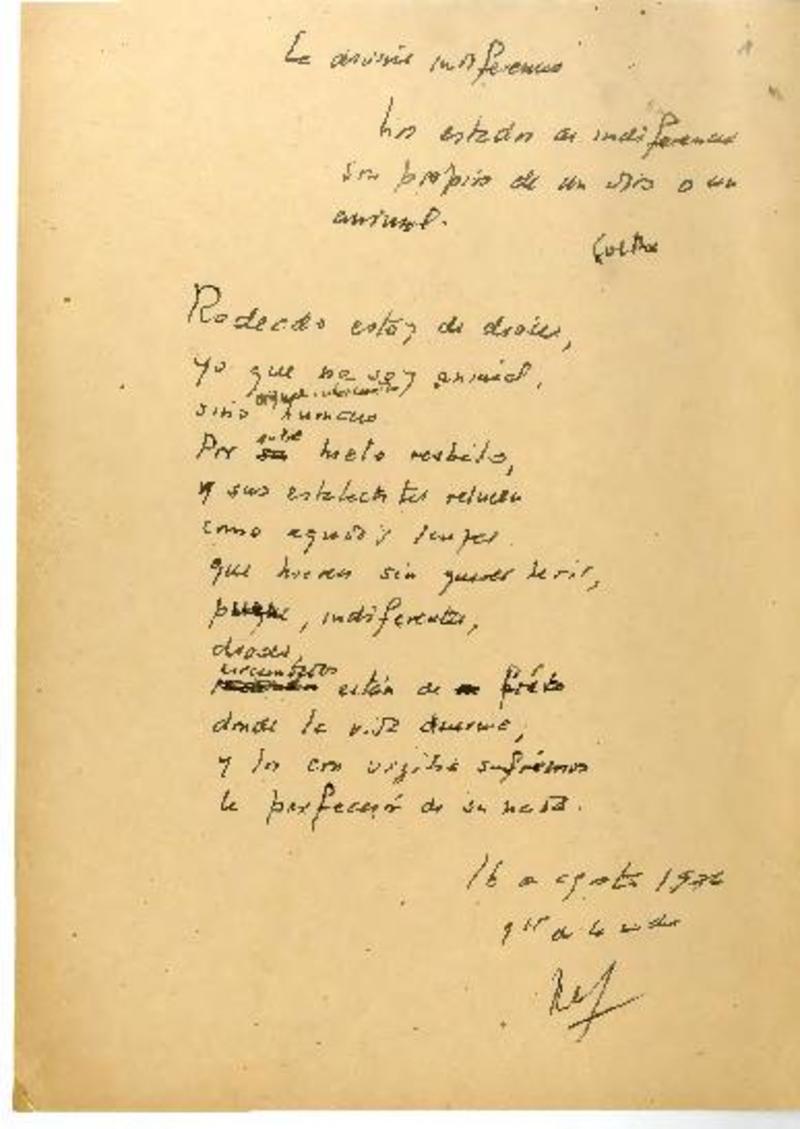 La divina indiferencia
Los estados de indiferencia
son propios de un dios o un
animal.
Goethe
Rodeado estoy de dioses,
yo que no soy animal,
sino humano
Por su hielo resbalo,
y sus estalactitas relucen
como agudos
que hieren sin querer herir,
porque, indiferentes,
dioses,
circundados están de frío
donde la vida duerme,
y los con vigilia sufrimos
la perfección de su nada.
16 a agosto
de la